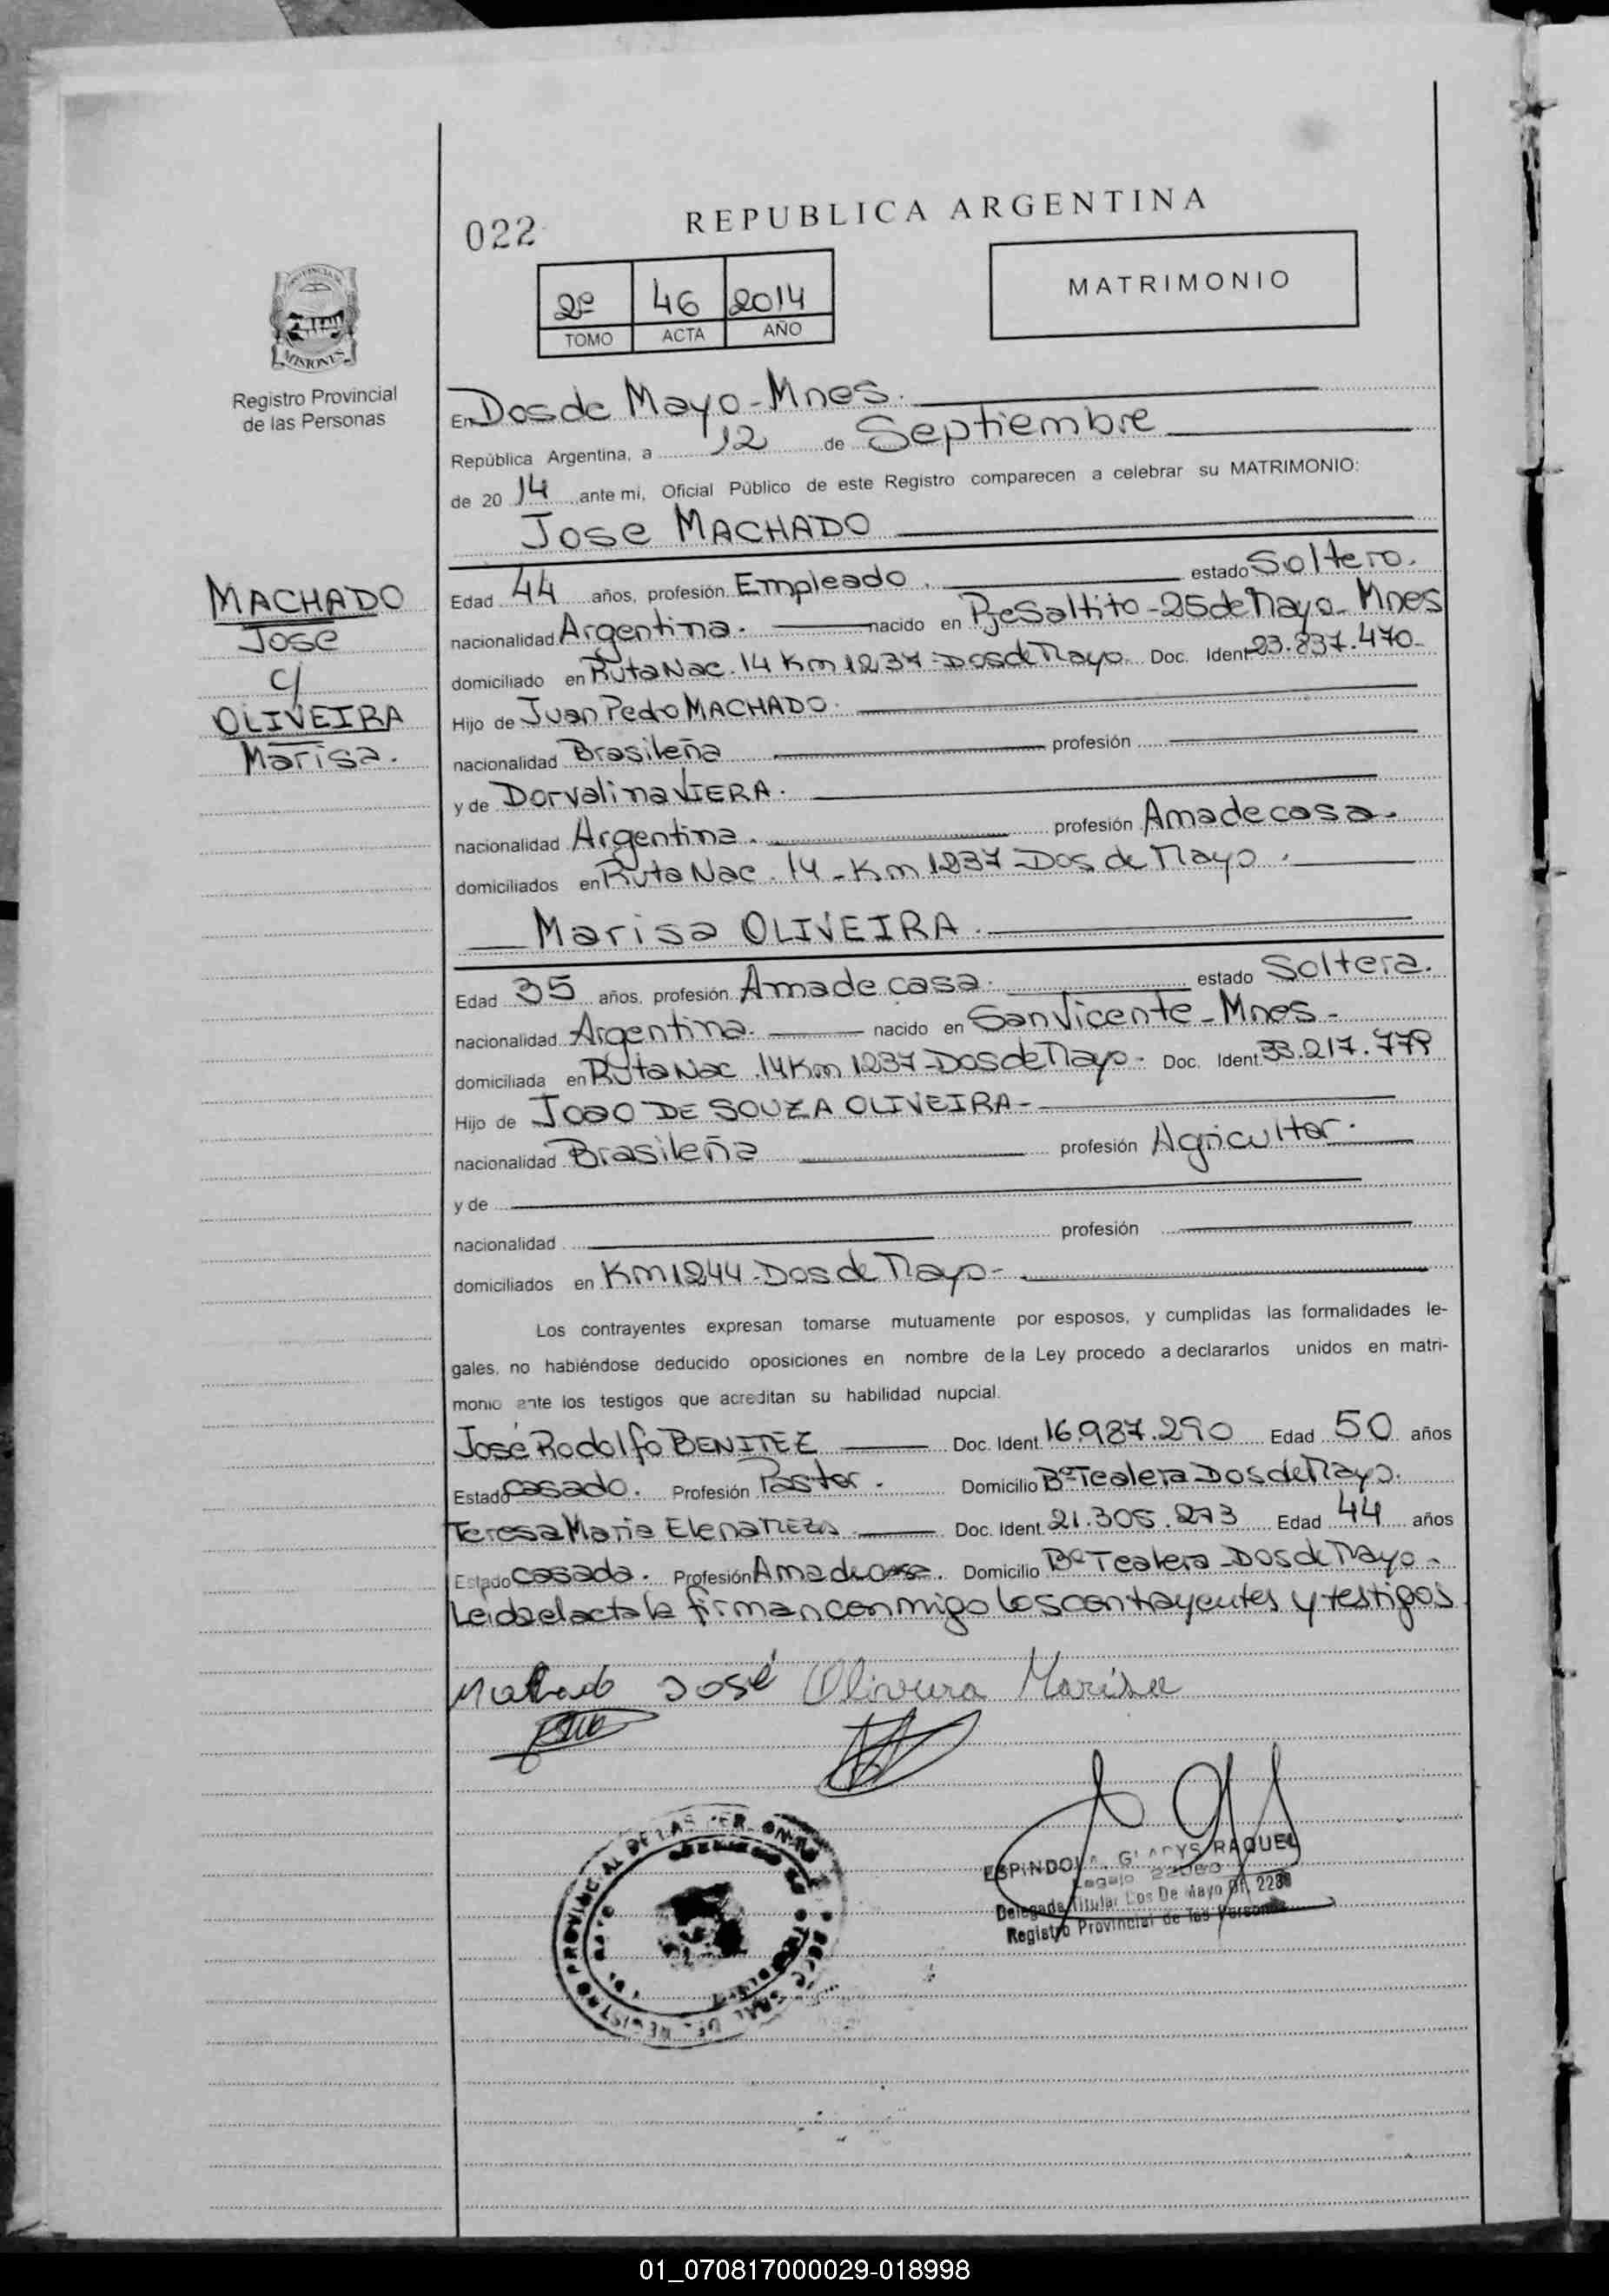 022
REPUBLICA ARGENTINA
2º 46 2014
TOMO ACTA AÑO
MATRIMONIO
MISIONES
Registro Provincial
de las Personas
En Dos de Mayo - Mnes.
República Argentina, a 12 de Septiembre
de 2014 ante mi, Oficial Público de este Registro comparecen a celebrar su MATRIMONIO:
Jose MACHADO
MACHADO
Jose
c/
OLIVEIRA
Marisa.
Edad 44 años, profesión Empleado. estado Soltero.
nacionalidad Argentina. nacido en Pje Saltito - 25 de Mayo - Mnes
domiciliado en Ruta Nac. 14 Km 1237 - Dos de Mayo. Doc. Ident 23.837.470-
Hijo de Juan Pedro MACHADO.
nacionalidad Brasileña profesión
y de Dorvalina VIERA.
nacionalidad Argentina. profesión Ama de casa.
domiciliados en Ruta Nac. 14 - Km 1237 - Dos de Mayo.
Marisa OLIVEIRA.
Edad 35 años, profesión Ama de casa. estado Soltera.
nacionalidad Argentina. nacido en San Vicente - Mnes -
domiciliada en Ruta Nac. 14 Km 1237 - Dos de Mayo - Doc. Ident. 33.217.779
Hijo de JOAO DE SOUZA OLIVEIRA -
nacionalidad Brasileña profesión Agricultor.
y de
nacionalidad profesión
domiciliados en Km 1244 - Dos de Mayo -
Los contrayentes expresan tomarse mutuamente por esposos, y cumplidas las formalidades le-
gales, no habiéndose deducido oposiciones en nombre de la Ley procedo a declararlos unidos en matri-
monio ante los testigos que acreditan su habilidad nupcial.
José Rodolfo BENITEZ Doc. Ident. 16.987.290 Edad 50 años
Estado casado. Profesión Pastor. Domicilio Bº Tealera Dos de Mayo.
Teresa Maria Elena MEZA Doc. Ident. 21.305.273 Edad 44 años
Estado casada. Profesión Ama de casa. Domicilio Bº Tealera - Dos de Mayo -
Leída el acta la firman conmigo los contrayentes y testigos
Machado José Oliveira Marisa
ESPINDOLA, GLADYS RAQUEL
Legajo
Delegada Titular Dos De Mayo Of.
Registro Provincial de las Personas
01_070817000029-018998